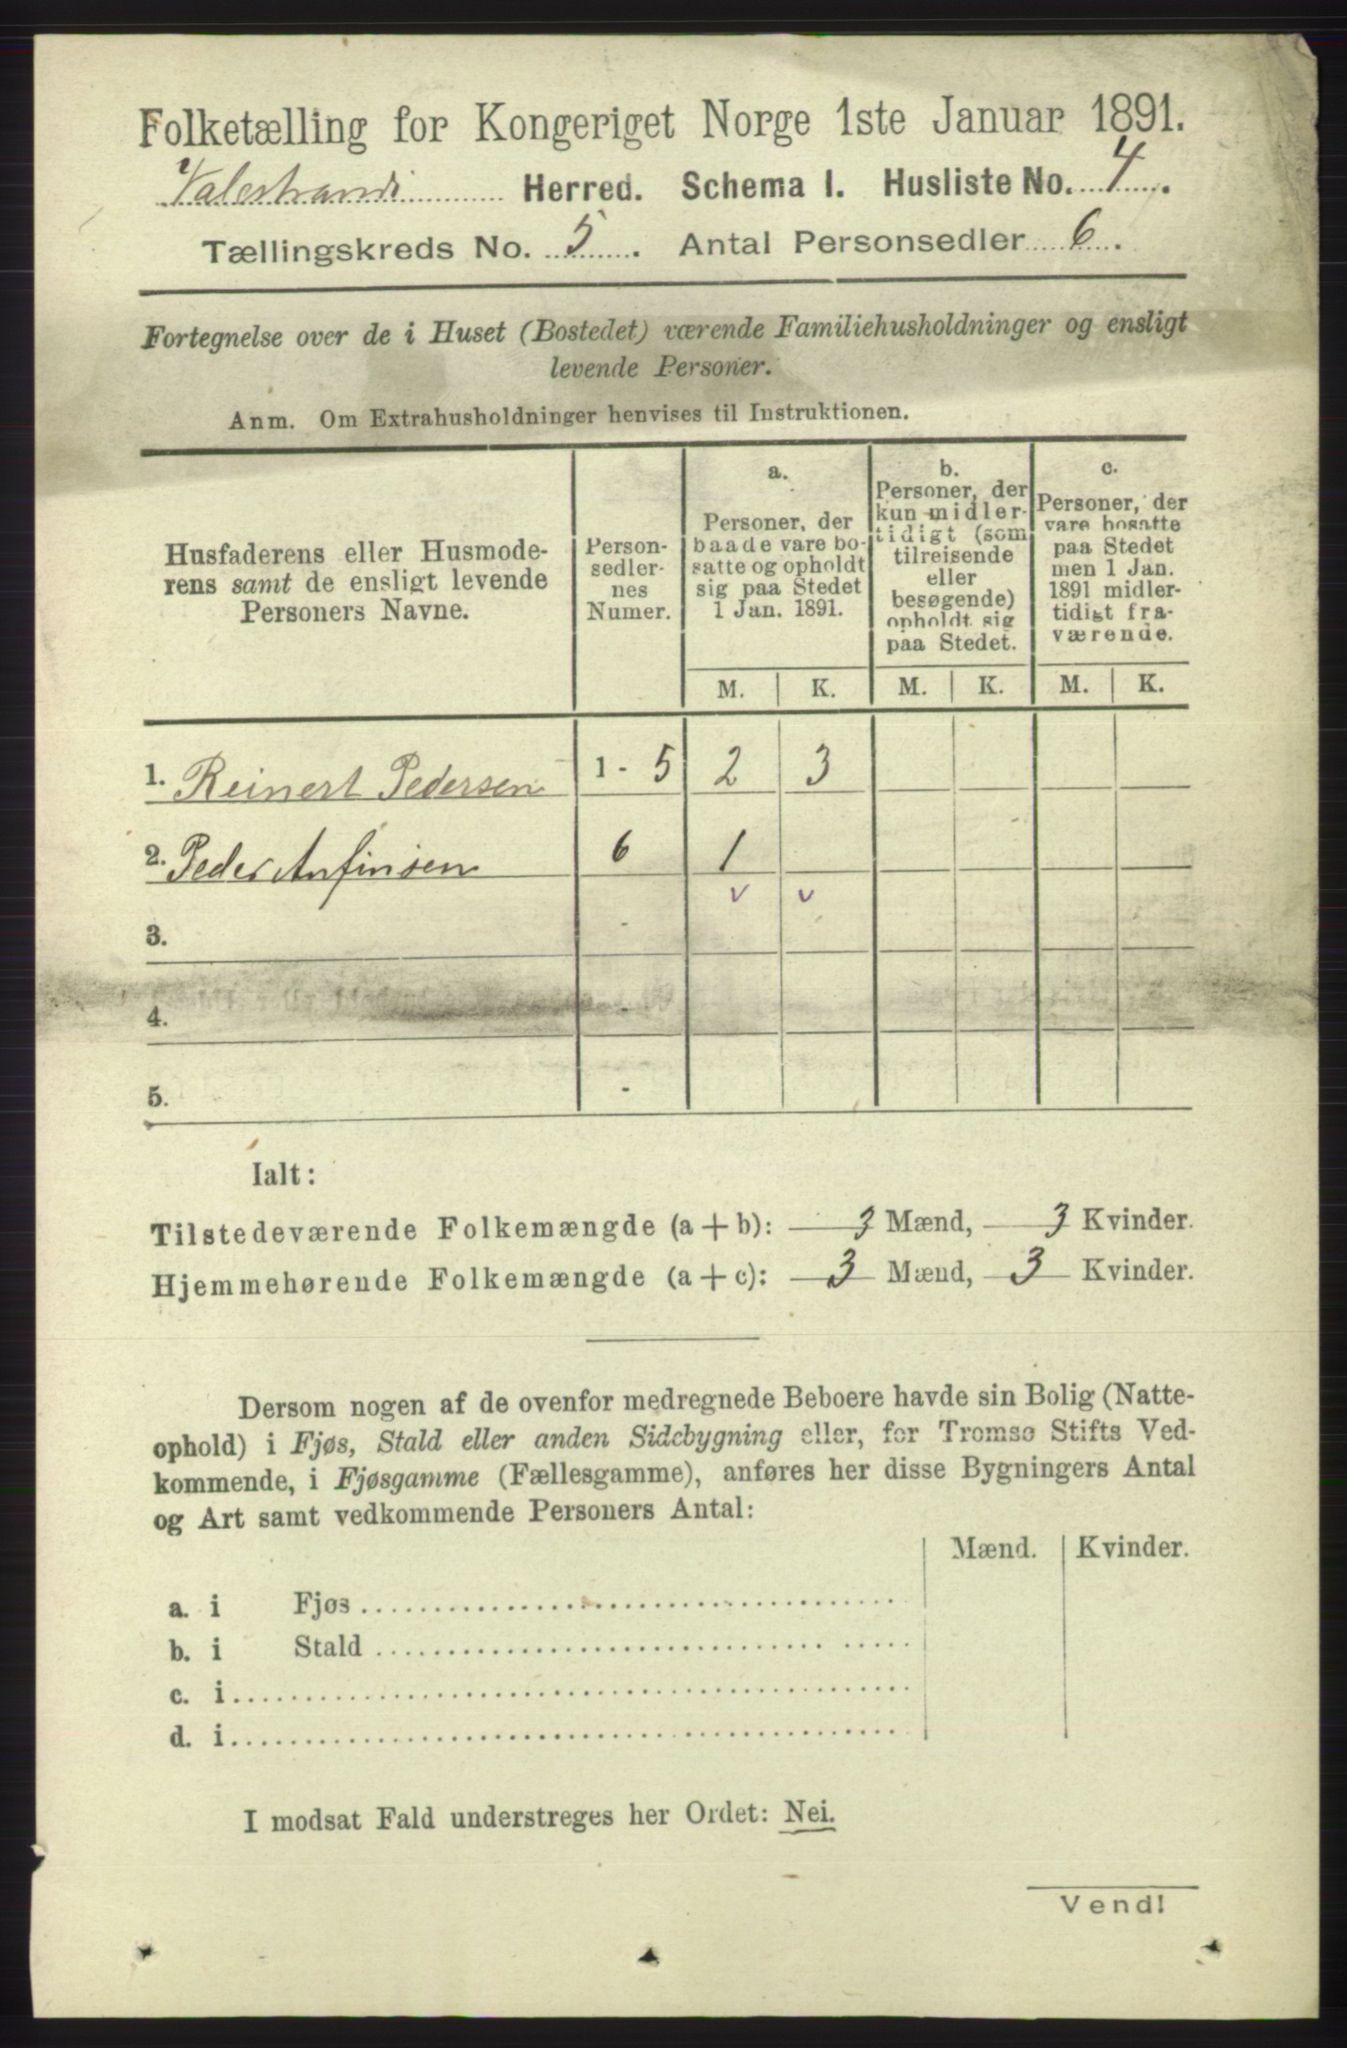 Folketælling for Kongeriget Norge 1ste Januar 1891.
Valestrand Herred. Schema I. Husliste No. 4.
Tællingskreds No. 5. Antal Personsedler 6.
Fortegnelse over de i Huset (Bostedet) værende Familiehusholdninger og ensligt
levende Personer.
Anm. Om Extrahusholdninger henvises til Instruktionen.
Husfaderens eller Husmode-
rens samt de ensligt levende
Personers Navne.
Person-
sedler-
nes
Numer.
a.
Personer, der
baade vare bo-
satte og opholdt
sig paa Stedet
1 Jan. 1891.
b.
Personer, der
kun midler-
tidigt (som
tilreisende
eller
besøgende)
opholdt sig
paa Stedet.
c.
Personer, der
vare bosatte
paa Stedet
men 1 Jan.
1891 midler-
tidigt fra-
værende.
M. K. M. K. M. K.
1. Reinert Pedersen 1 - 5 2 3
2. Peder Anfinsen 6 1
v v
3. -
4. -
5. -
Ialt:
Tilstedeværende Folkemængde (a+b): 3 Mænd, 3 Kvinder.
Hjemmehørende Folkemængde (a+c): 3 Mænd, 3 Kvinder.
Dersom nogen af de ovenfor medregnede Beboere havde sin Bolig (Natte-
ophold) i Fjøs, Stald eller anden Sidebygning eller, for Tromsø Stifts Ved-
kommende, i Fjøsgamme (Fællesgamme), anføres her disse Bygningers Antal
og Art samt vedkommende Personers Antal:
Mænd. Kvinder.
a. i Fjøs
b. i Stald
c. i
d. i
I modsat Fald understreges her Ordet: Nei.
Vend!